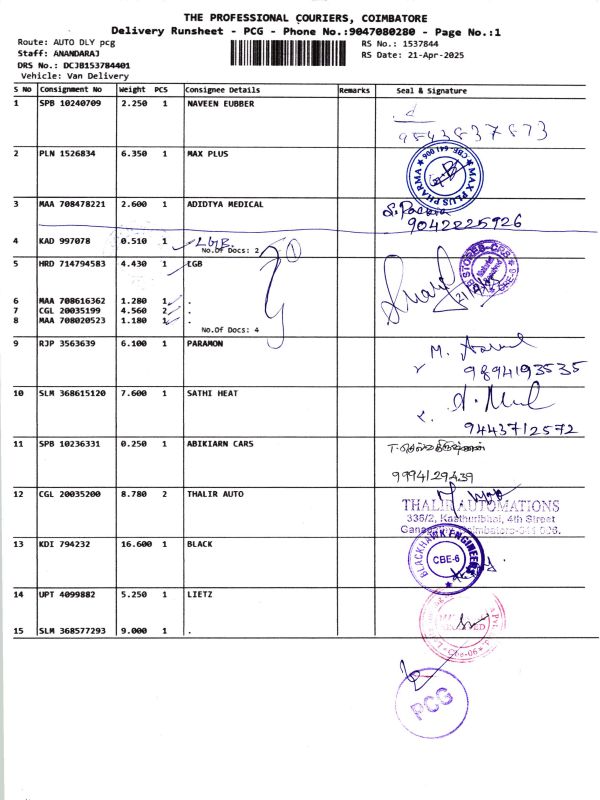 THE PROFESSIONAL COURIERS, COIMBATORE
Delivery Runsheet - PCG - Phone No.:9047080280 - Page No.:1
Route: AUTO DLY pcg
Staff: ANANDARAJ
DRS No.: DCJB153784401
Vehicle: Van Delivery
RS No.: 1537844
RS Date: 21-Apr-2025
S No Consignment No Weight PCS Consignee Details Remarks Seal & Signature
1 SPB 10240709 2.250 1 NAVEEN EUBBER
9843837873
2 PLN 1526834 6.350 1 MAX PLUS
MAX PLUS PHARMA CBE-641 006
3 MAA 708478221 2.600 1 ADIDTYA MEDICAL
9042225926
4 KAD 997078 0.510 1 LGB.
No.Of Docs: 2
5 HRD 714794583 4.430 1 LGB
6 MAA 708616362 1.280 1 .
7 CGL 20035199 4.560 2 .
8 MAA 708020523 1.180 1 .
No.Of Docs: 4
STORES-CRB
CBE-6
9 RJP 3563639 6.100 1 PARAMON
9894193535
10 SLM 368615120 7.600 1 SATHI HEAT
9443712572
11 SPB 10236331 0.250 1 ABIKIARN CARS
9994129439
12 CGL 20035200 8.780 2 THALIR AUTO
THALIR AUTOMATIONS
335/2, Kasthuribai, 4th Street
13 KDI 794232 16.600 1 BLACK
BLACKHAWK ENGINEERS
CBE-6
14 UPT 4099882 5.250 1 LIETZ
15 SLM 368577293 9.000 1 .
PCG